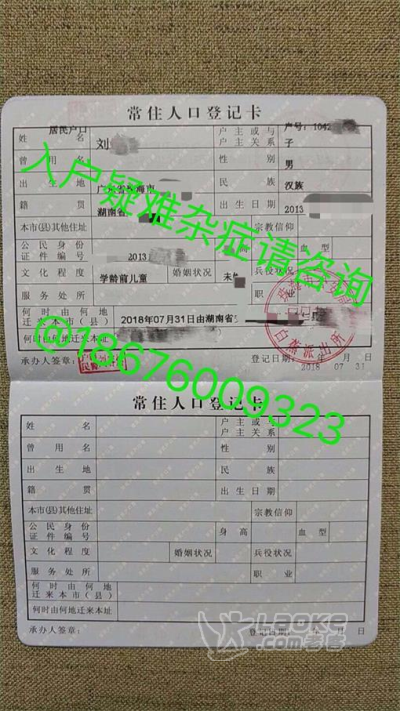 常住人口登记卡
居民户口 户号: 1042
姓 名 刘 户主或与户主关系 子
曾用名 性 别 男
出生地 广东省 海南 民 族 汉族
籍 贯 湖南省 出生日期 2013
本市(县)其他住址 宗教信仰
公民身份证件编号 2013 血型
文化程度 学龄前儿童 婚姻状况 未 兵役状况
服务处所 职
何时由何地迁来本市(县) 2018年07月31日由湖南省
何时由何地迁来本址
承办人签章: 登记日期: 2018 07 31 日
白蕉派出所
入户疑难杂症请咨询
@18676009323
常住人口登记卡
姓 名 户主或与户主关系
曾用名 性 别
出生地 民 族
籍 贯 出生日期
本市(县)其他住址 宗教信仰
公民身份证件编号 身高 血型
文化程度 婚姻状况 兵役状况
服务处所 职 业
何时由何地迁来本市(县)
何时由何地迁来本址
承办人签章: 登记日期: 年 月 日
LAOKE.com老客